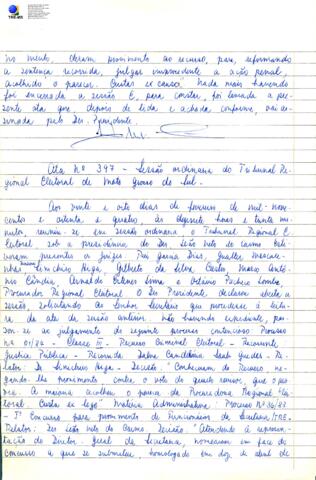 TRE-MS
no mérito, deram provimento ao recurso, para, reformando
a sentença recorrida, julgar improcedente a ação penal,
acolhido o parecer. Custas ex causa. Nada mais havendo
foi encerrada a sessão. E, para constar, foi lavrada a pre-
sente ata que, depois de lida e achada conforme, vai as-
sinada pelo Des. Presidente.
Ata Nº 397 - Sessão ordinária do Tribunal Re-
gional Eleitoral de Mato Grosso do Sul.
Aos vinte e oito dias de fevereiro de mil nove-
centos e oitenta e quatro, às dezessete horas e trinta mi-
nutos, reuniu-se em sessão ordinária, o Tribunal Regional E-
leitoral sob a presidência do Des. Leão Neto do Carmo. Esti-
veram presentes os juízes: Rui Garcia Dias,
Higa, Gilberto da Silva Castro, Marco Antô-
nio Cândia, e Octávio Pacheco Lomba,
Procurador Regional Eleitoral. O Des. Presidente declarou aberta a
sessão, solicitando ao Senhor Secretário que procedesse à leitu-
ra da ata da sessão anterior. Não havendo expediente, pas-
sou-se ao julgamento do seguinte processo contencioso: Processo
Nº 01/84 - Classe III - Recurso Criminal Eleitoral - Recorrente
Justiça Pública - Recorrida Dalva Guedes - Re-
lator: Dr. Higa - Decisão: "Conheceram do Recurso, ne-
gando-lhe provimento contra o voto do
A maioria acolheu o parecer da Procuradoria Regional Elei-
toral. Custas ex lege." Matéria Administrativa: Processo Nº 36/83
- 1º Concurso para provimento de Funcionários da Secretaria/TRE.
Relator: Des. Leão Neto do Carmo. Decisão: "Atendendo à represen-
tação do Diretor-Geral da Secretaria, nomearam em face do
concurso a que se submeteu, homologado em doze de abril de